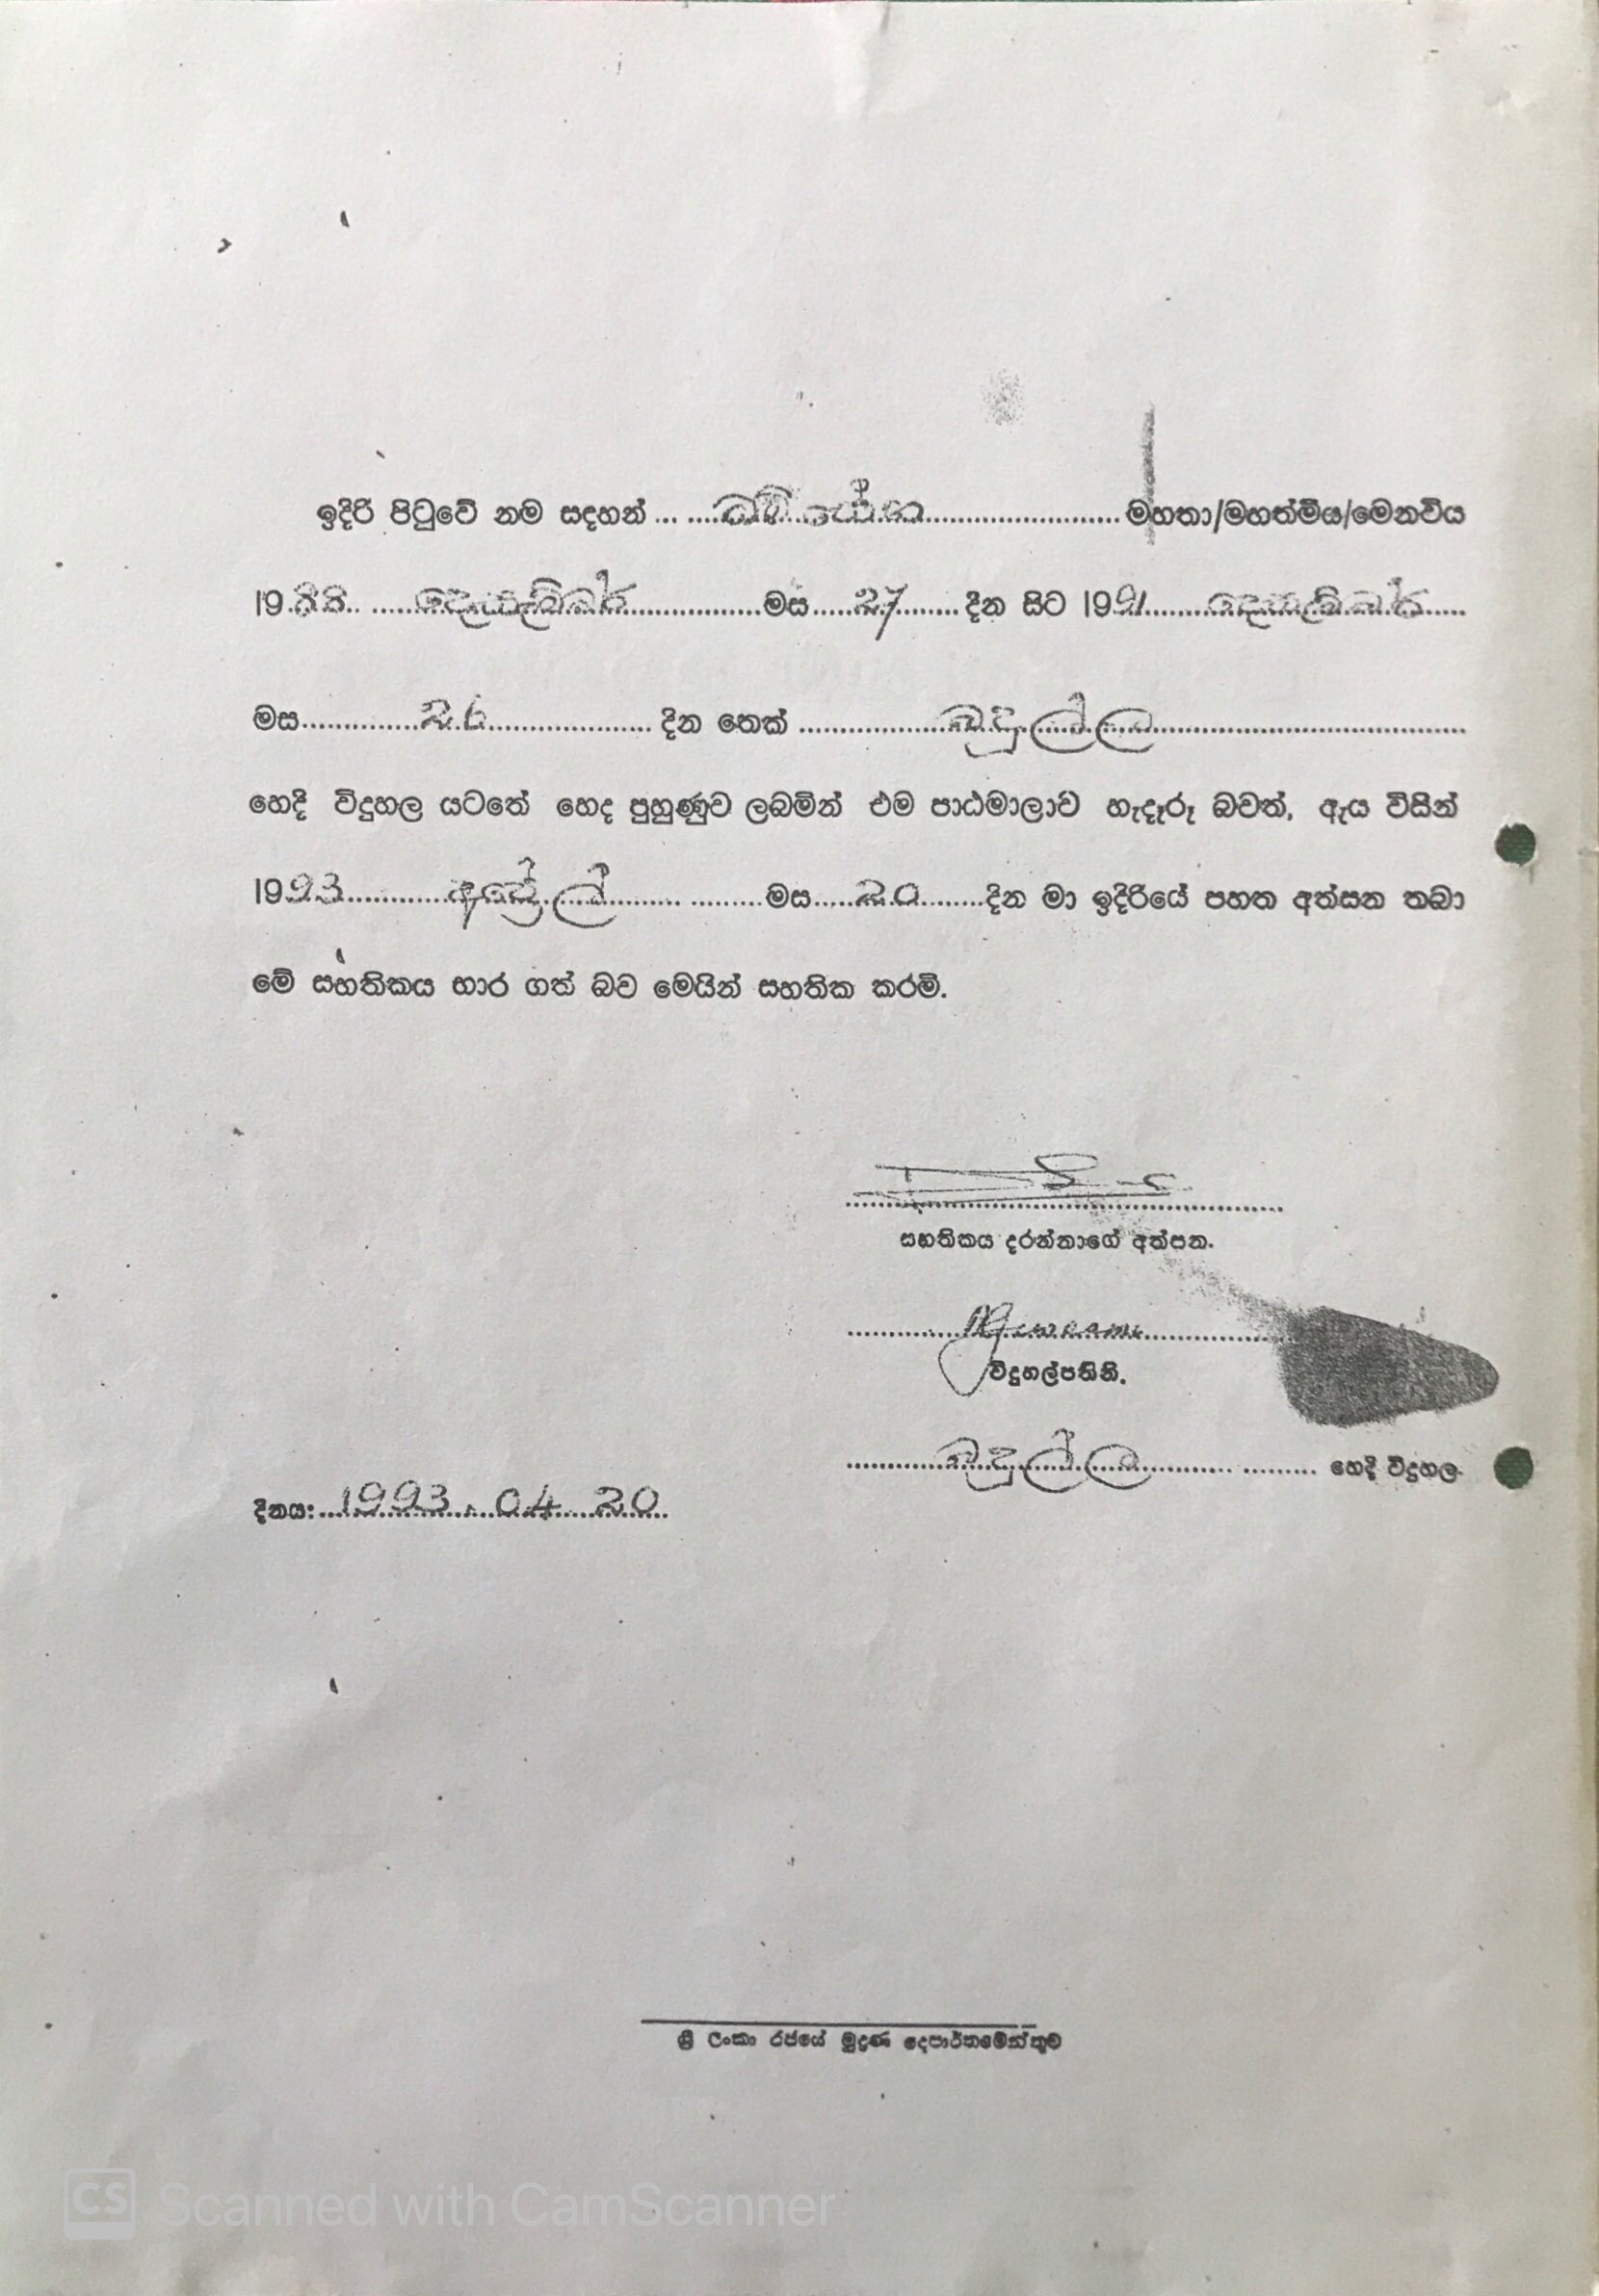 ඉදිරි පිටුවේ නම සදහන් ... ........................ මහතා/මහත්මිය/මෙනවිය
1988 දෙසැම්බර් මස 27 දින සිට 1991 දෙසැම්බර්
මස 26 දින තෙක් බදුල්ල
හෙදි විදුහල යටතේ හෙද පුහුණුව ලබමින් එම පාඨමාලාව හැදෑරූ බවත්, ඇය විසින්
1993 අප්‍රේල් මස 20 දින මා ඉදිරියේ පහත අත්සන තබා
මේ සහතිකය භාර ගත් බව මෙයින් සහතික කරමි.
සහතිකය දරන්නාගේ අත්සන.
විදුහල්පතිනි.
බදුල්ල හෙදි විදුහල
දිනය: 1993.04.20
ශ්‍රී ලංකා රජයේ මුද්‍රණ දෙපාර්තමේන්තුව
CS Scanned with CamScanner